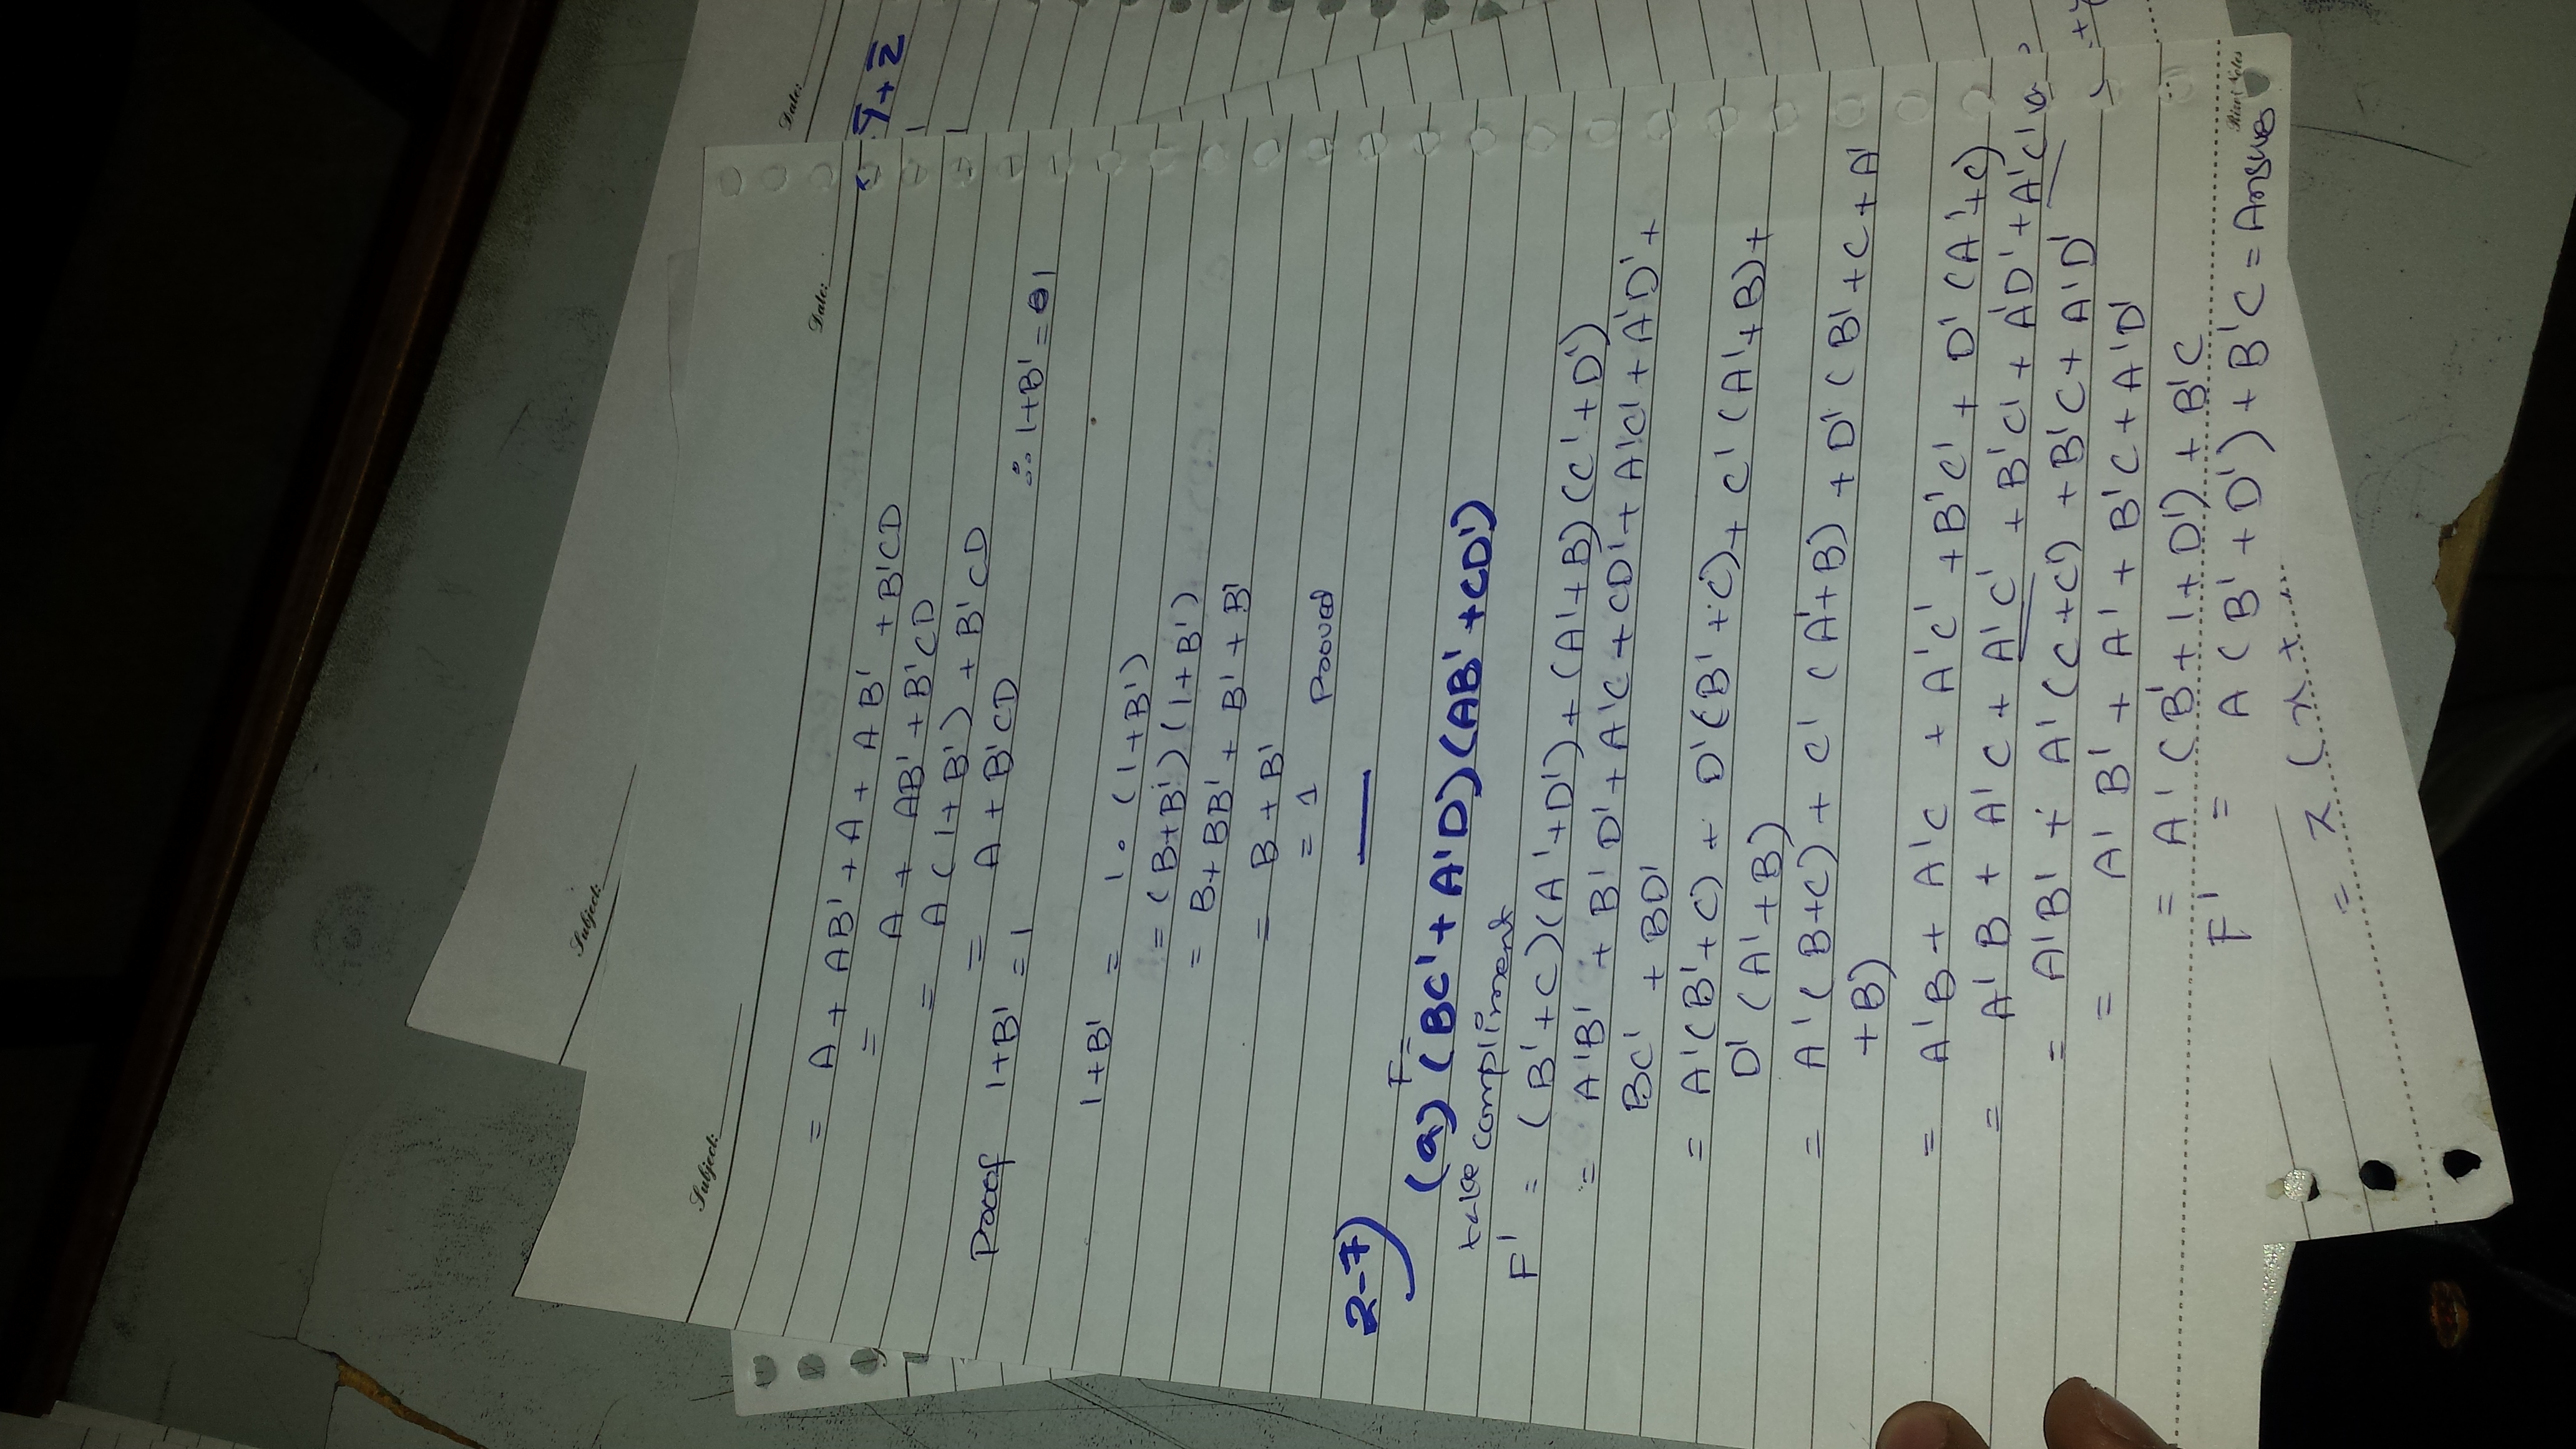 Subject:
Date:
= A + AB' + A + AB' + B'CD
= A + AB' + B'CD
= A (1+B') + B'CD
= A + B'CD ∴ 1+B' = 1
Proof 1+B' = 1
1+B' = 1. (1+B')
= (B+B') (1+B')
= B+BB' + B' + B'
= B + B'
= 1 Prooved
2-7)
(a) F= (BC' + A'D) (AB' + CD')
take compliment
F' = (B'+C)(A'+D') + (A'+B)(C'+D')
= A'B' + B'D' + A'C + CD' + A'C' + A'D' +
BC' + BD'
= A'(B'+C) + D'(B'+C) + C'(A'+B) +
D'(A'+B)
= A'(B+C) + C'(A'+B) + D'(B'+C+A'
+B)
= A'B + A'C + A'C' + B'C' + D'(A'+C)
= A'B + A'C + A'C' + B'C' + A'D' + A'C'
= A'B' + A'(C+C') + B'C + A'D'
= A'B' + A' + B'C + A'D'
= A'(B'+1+D') + B'C
F' = A(B'+D') + B'C = Answer
= z (x +
Subject:
Date: